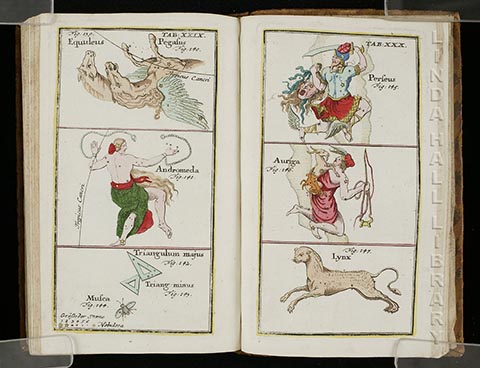 Fig. 139.
Equuleus
TAB. XXIX.
Pegasus
Fig. 140.
Tropicus Cancri
Andromeda
Fig. 141.
Tropicus Cancri
Triangulum majus
Fig. 142.
Triang. minus
Fig. 143.
Musca
Fig. 144.
Nebulosa
TAB. XXX.
Perseus
Fig. 145.
Auriga
Fig. 146.
Fig. 147.
Lynx
LINDA HALL LIBRARY